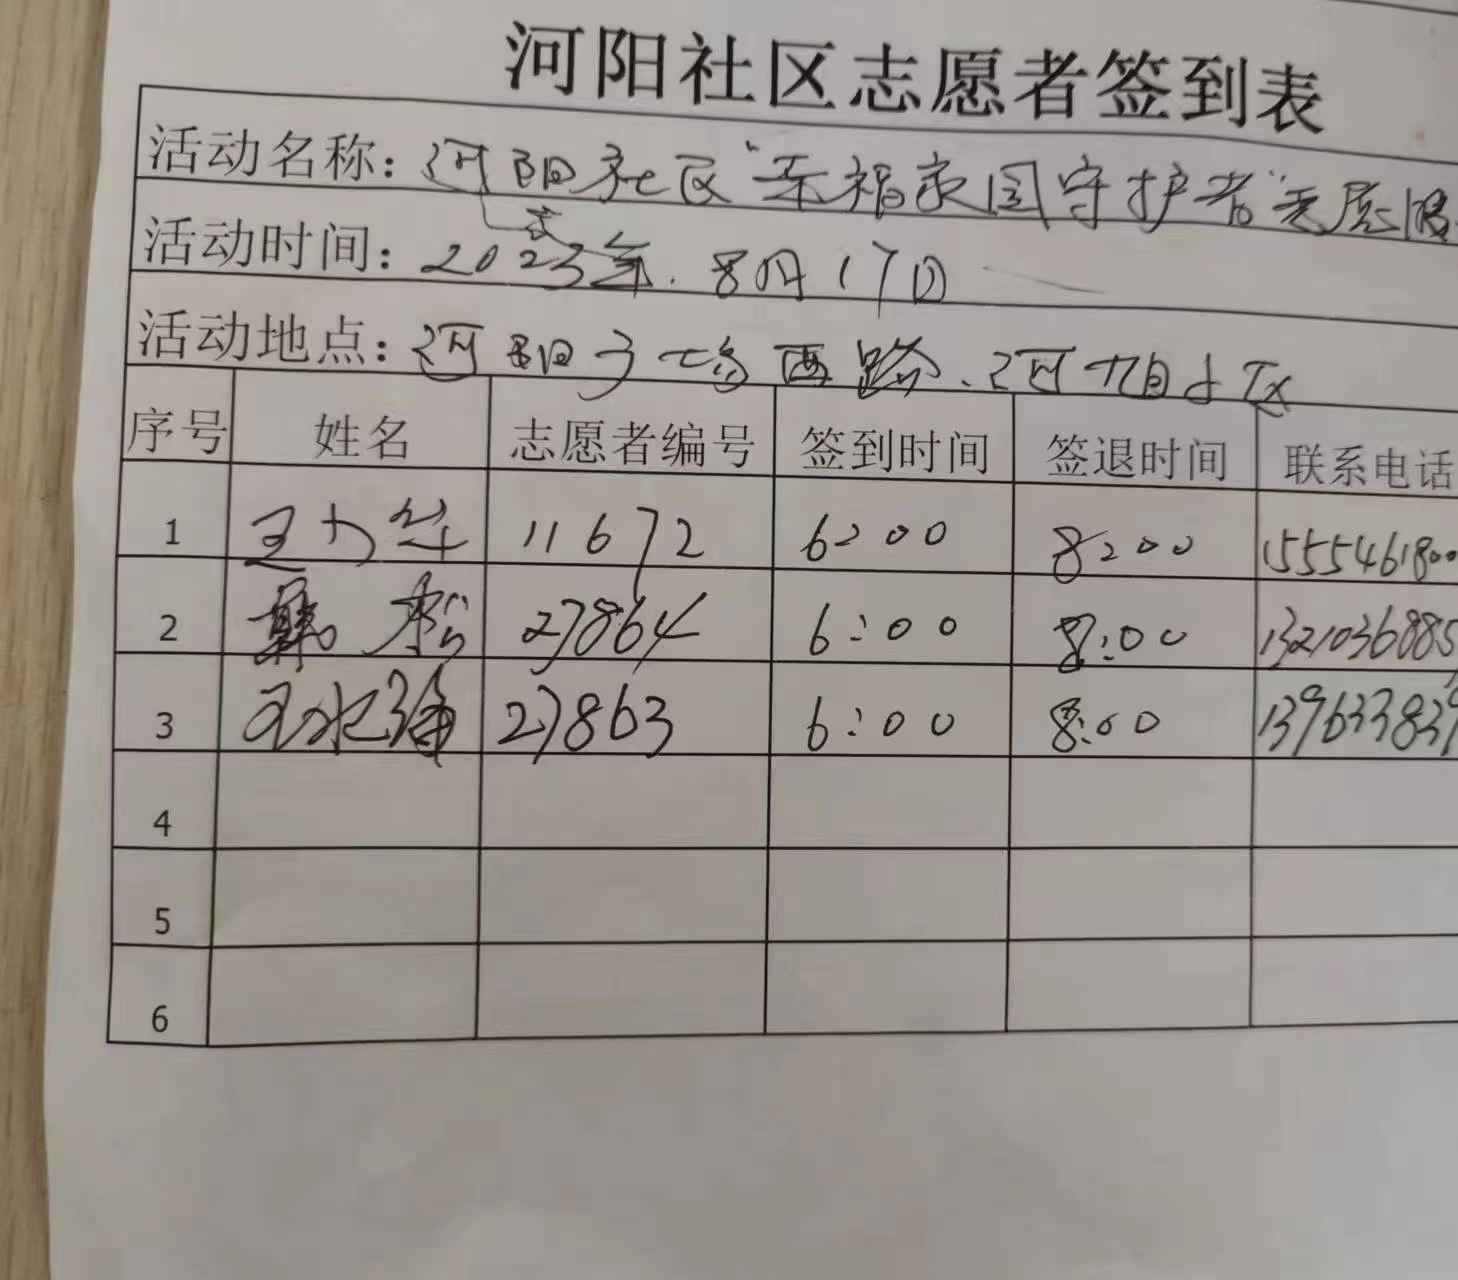 河阳社区志愿者签到表
活动名称：河阳社区“幸福家园守护者”志愿服
活动时间：2023年.8月17日
活动地点：河阳 西路、河阳
序号 姓名 志愿者编号 签到时间 签退时间 联系电话
1 11672 6:00 8:00 1555461800
2 松 27864 6:00 8:00 1321036885
3 27863 6:00 8:00 139633839
4
5
6